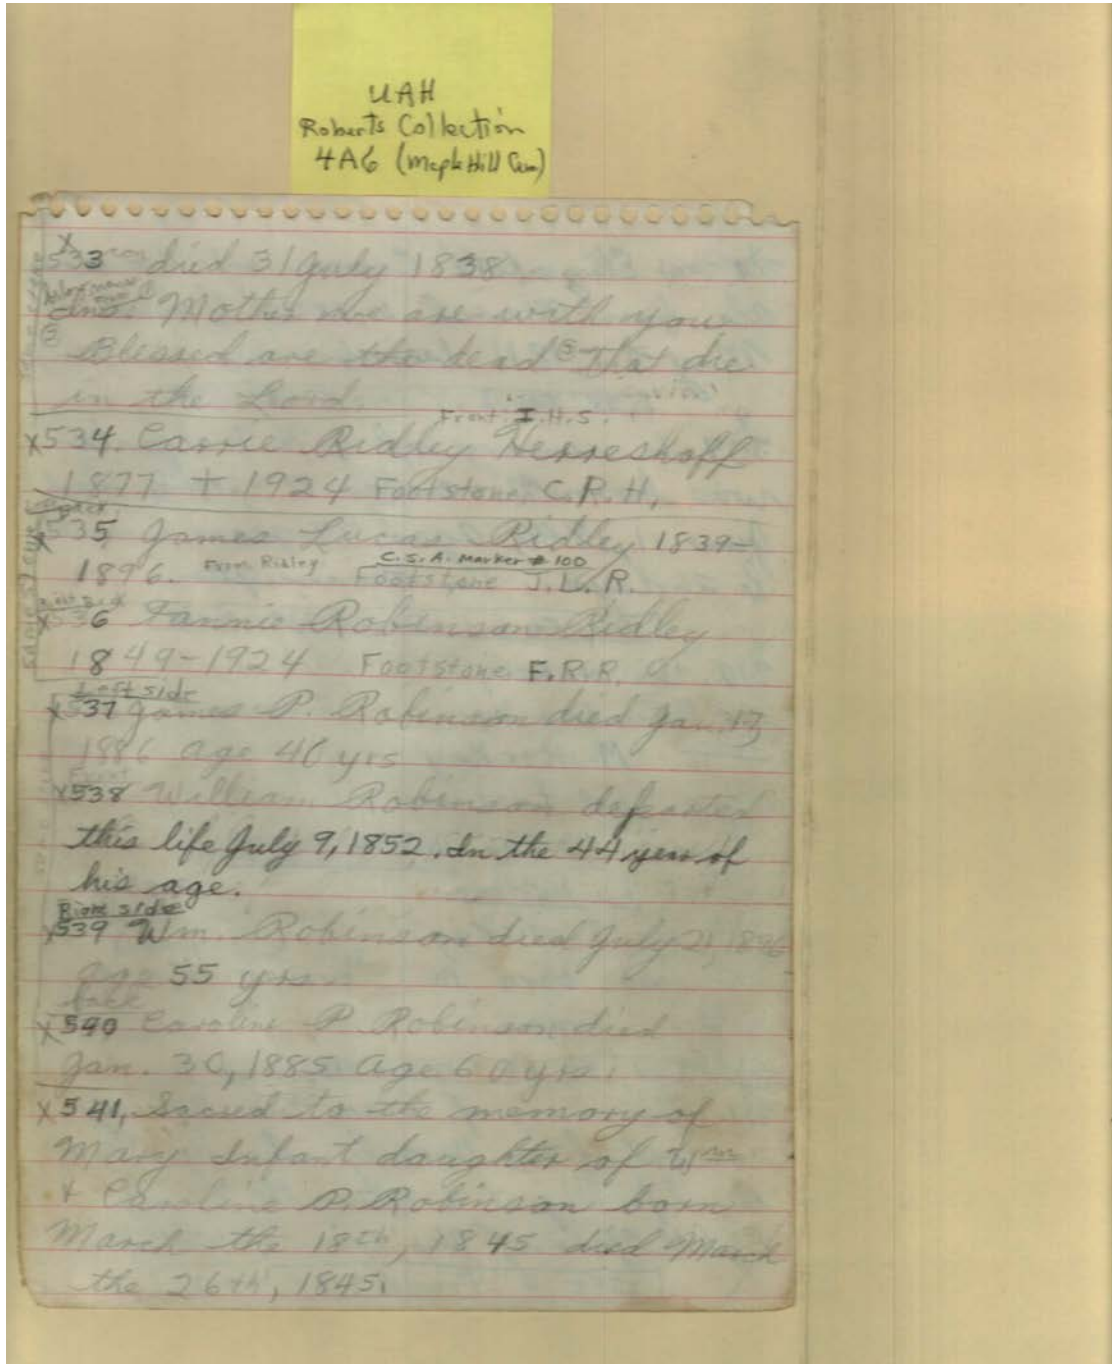 UAH
Roberts Collection
4A6 (Maple Hill Cem)
X
533 con died 31 July 1838
Mother we are with you
② Blessed are the dead ③ That die
in the Lord.
Front I.H.S.
X534. Carrie Ridley Herreshoff
1877 + 1924 Footstone C.R.H.
X535 James Lucas Ridley 1839-
1896. Front Ridley C.S.A. Marker # 100
Footstone J.L.R.
X536 Fannie Robinson Ridley
1849-1924 Footstone F.R.R.
Left side
X537 James P. Robinson died Jan. 17,
1886 age 46 yrs
Front
X538 William Robinson departed
this life July 9, 1852. In the 44 year of
his age.
Right side
X539 Wm. Robinson died July 21, 1896
age 55 yrs.
back
X540 Caroline P. Robinson died
Jan. 30, 1885 Age 60 yrs.
X541, Sacred to the memory of
Mary Infant daughter of Wm
+ Caroline P. Robinson born
March the 18th, 1845 died March
the 26th, 1845.